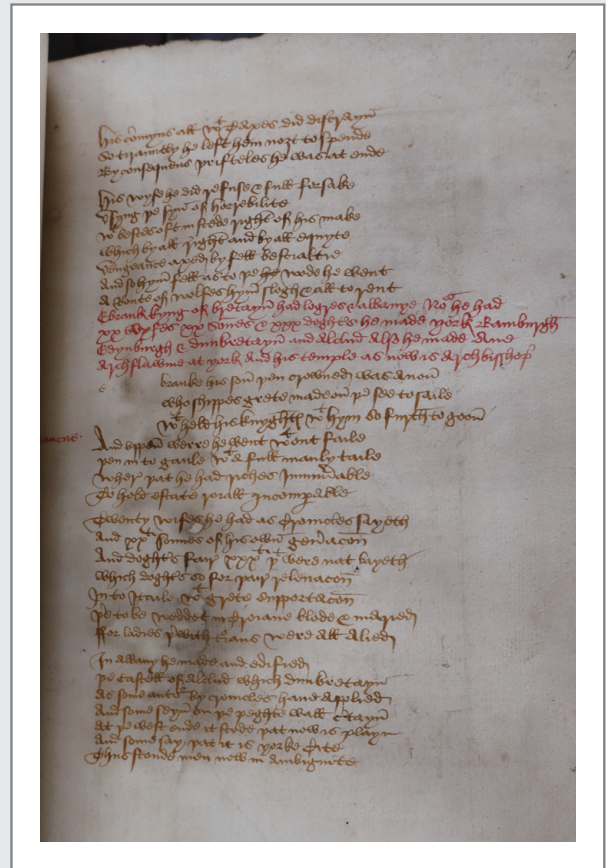 His comyns all wt Taxes did distrayn
So tirauntly he left hem nozt to spende
By consequens prifteles he was at ende
His wyfe he did refuse & full forsake
Vsyng þe synn of horribilite
wt bestes oft in stede right of his make
which by all right and by all equyte
vengeance axed by fell bestialtie
And so hym fell as to þe wode he went
A Route of wolfes hym slogh & all to rent
Ebrank kyng of bretayn had logres & albanye he had
xx wyfes xx sones & xxx doghts he made york Bamburgh
Edynburgh & dunbretayn and Alclud Also he made Ane
Archflawme at york And his temple as now is Archbisshop
e
branke his son þen crowned was anon
who shippes grete made on þe see to saile
wt held his knyghtes wt hym so furth to goon
And vppon werre he went wtout faile
þen in to gaule wt a full manly taile
wher þat he had riches Innumerable
To hold estate roiall Incomperable
Twenty wifes he had as Cronicles sayeth
And xxti sonnes of his own generacon
And doghts fair xxxti þt were nat layeth
which doghts so for þair relevacon
In to Itaile wt grete supportacon
þe to be wedded in Troiane blode & maried
ffor ladies þr with thaus were all Alied
In albany he made and edified
þe castell of Alclud which dunbretayn
As some autor by cronicles haue applied
And some seyn on þe peghte wall Certayn
At þe west ende it stode þat now is playn
And some say þat it is yorke Cite
Thus stonde men now in Ambiguite